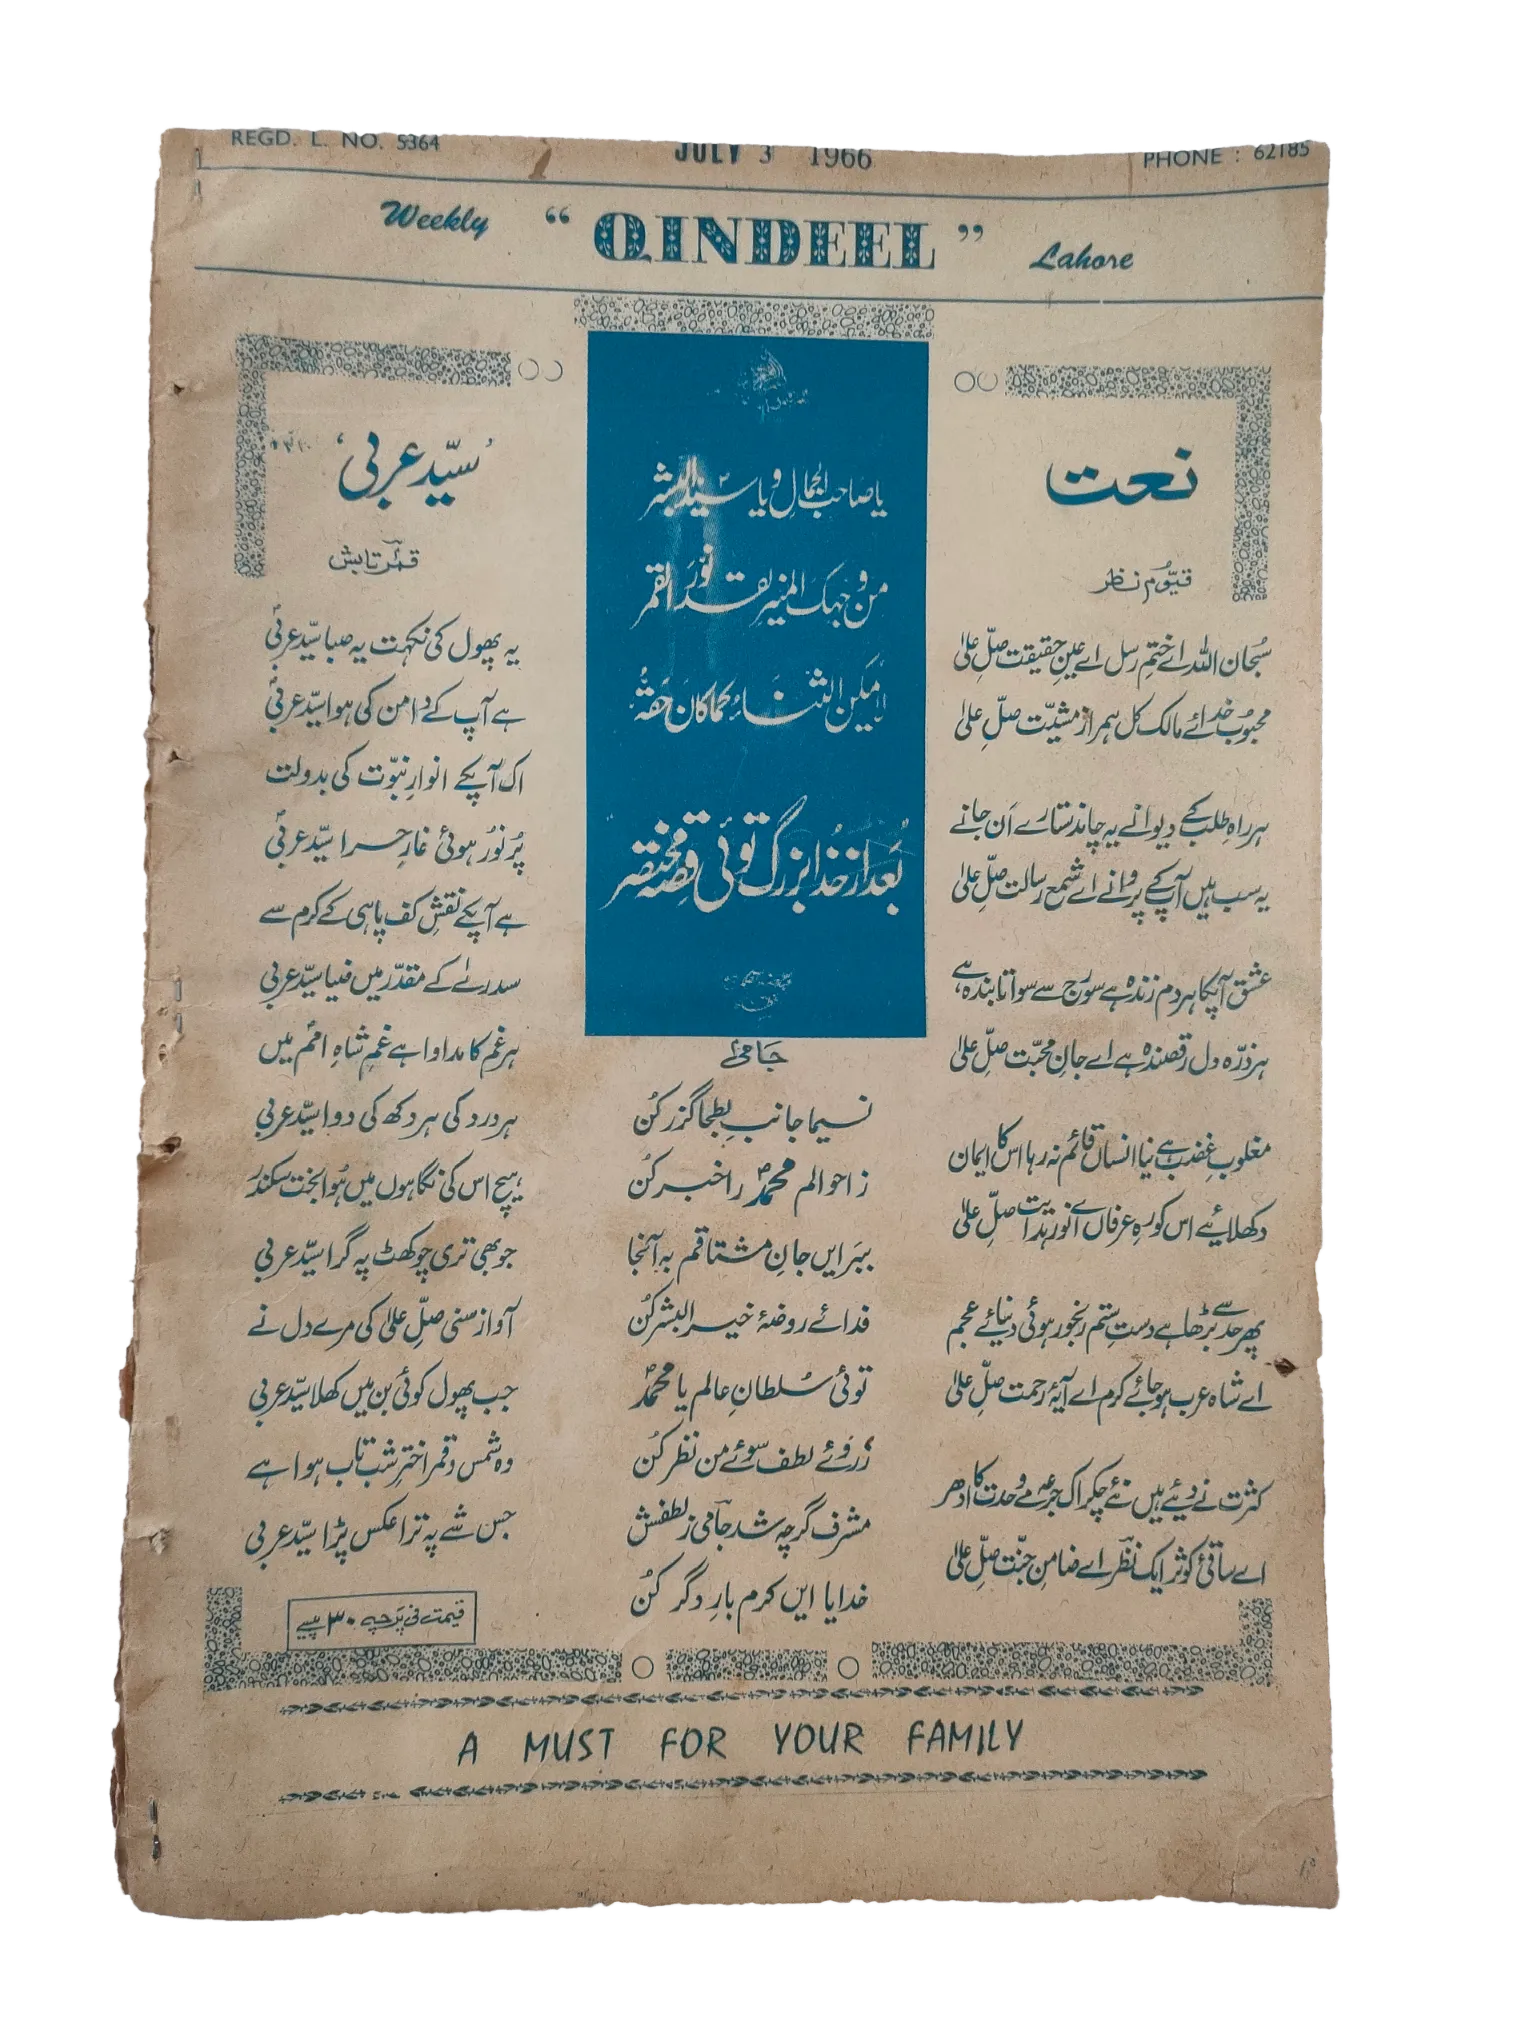 REGD. L. NO. 5364
JULY 3 1966
PHONE : 62185
Weekly "QINDEEL" Lahore
نعت
قیوّم نظر
سُبحان اللہ اے ختمِ رسل اے عینِ حقیقت صلِّ علیٰ
محبُوبِ خدائے مالک کل ہمراز مشیّت صلِّ علیٰ
ہر راہِ طلب کے دیوانے یہ چاند ستارے اَن جانے
یہ سب ہیں آپ کے پروانے اے شمع رسالت صلِّ علیٰ
عشق آپکا ہر دم زندہ ہے سورج سے سوا تابندہ ہے
ہر ذرّہ دل رقصندہ ہے اے جانِ محبّت صلِّ علیٰ
مغلوبِ غضب ہے نیا انساں قائم نہ رہا اس کا ایمان
دکھلائیے اس کو رہِ عرفاں اے نور ہدایت صلِّ علیٰ
پھر حد سے بڑھا ہے دستِ ستم رنجور ہوئی دنیائے عجم
اے شاہ عرب ہو جائے کرم اے آیۂ رحمت صلِّ علیٰ
کثرت نے دیئے ہیں نئے چکر اک جرعہ مے وحدت کا ادھر
اے ساقیٔ کوثر ایک نظر اے ضامنِ جنّت صلِّ علیٰ
یا صاحب الجمالِ و یا سیّد البشر
من وجہک المنیرِ لقد نوّر القمر
لا یمکن الثناءُ کما کانَ حَقّہُ
بعد از خُدا بزرگ توئی قصّہ مختصر
جامیؒ
نسیما جانبِ بطحا گزر کُن
ز احوالم محمدؐ را خبر کُن
ببَر ایں جانِ مشتاقم بہ آنجا
فدائے روضۂ خیر البشر کُن
توئی سُلطانِ عالم یا محمدؐ
زرُوئے لطف سُوئے من نظر کُن
مشرف گرچہ شد جامی ز لطفش
خدایا ایں کرم بارِ دگر کُن
'سیّد عربی'
قمر تابش
یہ پھول کی نکہت یہ صبا سیّد عربیؐ
ہے آپ کے دامن کی ہوا سیّد عربیؐ
اک آپکے انوارِ نبوّت کی بدولت
پُر نُور ہوئی غارِ حرا سیّد عربیؐ
ہے آپکے نقشِ کف پا ہی کے کرم سے
سدرٰے کے مقدّر میں ضیا سیّد عربی
ہر غم کا مداوا ہے غمِ شاہِ اُمم میں
ہر درد کی ہر دکھ کی دوا سیّد عربی
ہیچ اس کی نگاہوں میں ہُوا بخت سکندر
جو بھی تری چوکھٹ پہ گرا سیّد عربی
آواز سنی صلِّ علیٰ کی مرے دل نے
جب پھول کوئی بن میں کھلا سیّد عربی
وہ شمس و قمر اخترِ شب تاب ہوا ہے
جس شے پہ ترا عکس پڑا سیّد عربی
قیمت فی پرچہ ۳۰ پیسے
A MUST FOR YOUR FAMILY